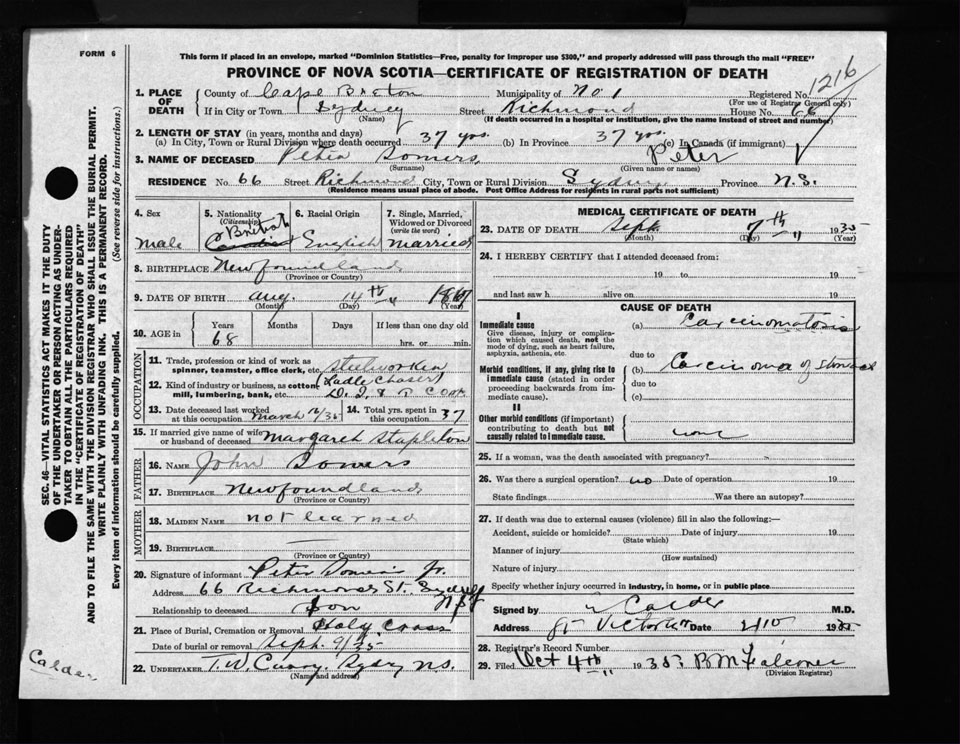 FORM 6
This form if placed in an envelope, marked "Dominion Statistics—Free, penalty for improper use $300," and properly addressed will pass through the mail "FREE"
PROVINCE OF NOVA SCOTIA—CERTIFICATE OF REGISTRATION OF DEATH
1216
1. PLACE OF DEATH County of Cape Breton Municipality of No 1 Registered No.
(For use of Registrar General only)
If in City or Town Sydney Street Richmond House No. 66
(Name) (If death occurred in a hospital or institution, give the name instead of street and number)
2. LENGTH OF STAY (in years, months and days)
(a) In City, Town or Rural Division where death occurred 37 yrs. (b) In Province 37 yrs. (c) In Canada (if immigrant)
3. NAME OF DECEASED Peter Somers, Peter
(Surname) (Given name or names)
RESIDENCE No. 66 Street Richmond City, Town or Rural Division Sydney Province N.S.
(Residence means usual place of abode. Post Office Address for residents in rural parts not sufficient)
4. Sex 5. Nationality (Citizenship) 6. Racial Origin 7. Single, Married, Widowed or Divorced (write the word)
male British Canadian English married
8. BIRTHPLACE Newfoundland
(Province or Country)
9. DATE OF BIRTH Aug. 14th 1867
(Month) (Day) (Year)
10. AGE in Years Months Days If less than one day
68 hrs. or min.
OCCUPATION
11. Trade, profession or kind of work as spinner, teamster, office clerk, etc. Steelworker
12. Kind of industry or business, as cotton mill, lumbering, bank, etc. Ladle Chaser
13. Date deceased last worked at this occupation March 12/35 14. Total yrs. spent in this occupation 37
15. If married give name of wife or husband of deceased Margaret Stapleton
FATHER
16. NAME John Somers
17. BIRTHPLACE Newfoundland
(Province or Country)
MOTHER
18. MAIDEN NAME not learned
19. BIRTHPLACE —
(Province or Country)
20. Signature of informant Peter Somers Jr.
Address 66 Richmond St. Sydney N.S.
Relationship to deceased Son
21. Place of Burial, Cremation or Removal Holy Cross
Date of burial or removal Sept. 9/35
22. UNDERTAKER T.W. Curry. Sydney N.S.
(Name and address)
MEDICAL CERTIFICATE OF DEATH
23. DATE OF DEATH Sept. 7th 1935
(Month) (Day) (Year)
24. I HEREBY CERTIFY that I attended deceased from:
19 to 19
and last saw h alive on 19
CAUSE OF DEATH
I
Immediate cause (a) Carcinomatosis
Give disease, injury or complication which caused death, not the mode of dying, such as heart failure, asphyxia, asthenia, etc.
due to
Morbid conditions, if any, giving rise to immediate cause (stated in order proceeding backwards from immediate cause). (b) Carcinoma of stomach
due to
(c)
II
Other morbid conditions (if important) contributing to death but not causally related to immediate cause. none
25. If a woman, was the death associated with pregnancy?
26. Was there a surgical operation? no Date of operation 19
State findings Was there an autopsy?
27. If death was due to external causes (violence) fill in also the following:—
Accident, suicide or homicide? Date of injury 19
(State which)
Manner of injury
(How sustained)
Nature of injury
Specify whether injury occurred in industry, in home, or in public place
Signed by Calder M.D.
Address Victoria Date 1935
28. Registrar's Record Number
29. Filed Oct 4th 1935 B M Falconer
(Division Registrar)
SEC. 46—VITAL STATISTICS ACT MAKES IT THE DUTY
OF THE UNDERTAKER OR PERSON ACTING AS UNDER-
TAKER TO OBTAIN ALL THE PARTICULARS REQUIRED
IN THE "CERTIFICATE OF REGISTRATION OF DEATH"
AND TO FILE THE SAME WITH THE DIVISION REGISTRAR WHO SHALL ISSUE THE BURIAL PERMIT.
WRITE PLAINLY WITH UNFADING INK. THIS IS A PERMANENT RECORD.
Every item of information should be carefully supplied. (See reverse side for instructions.)
Calder